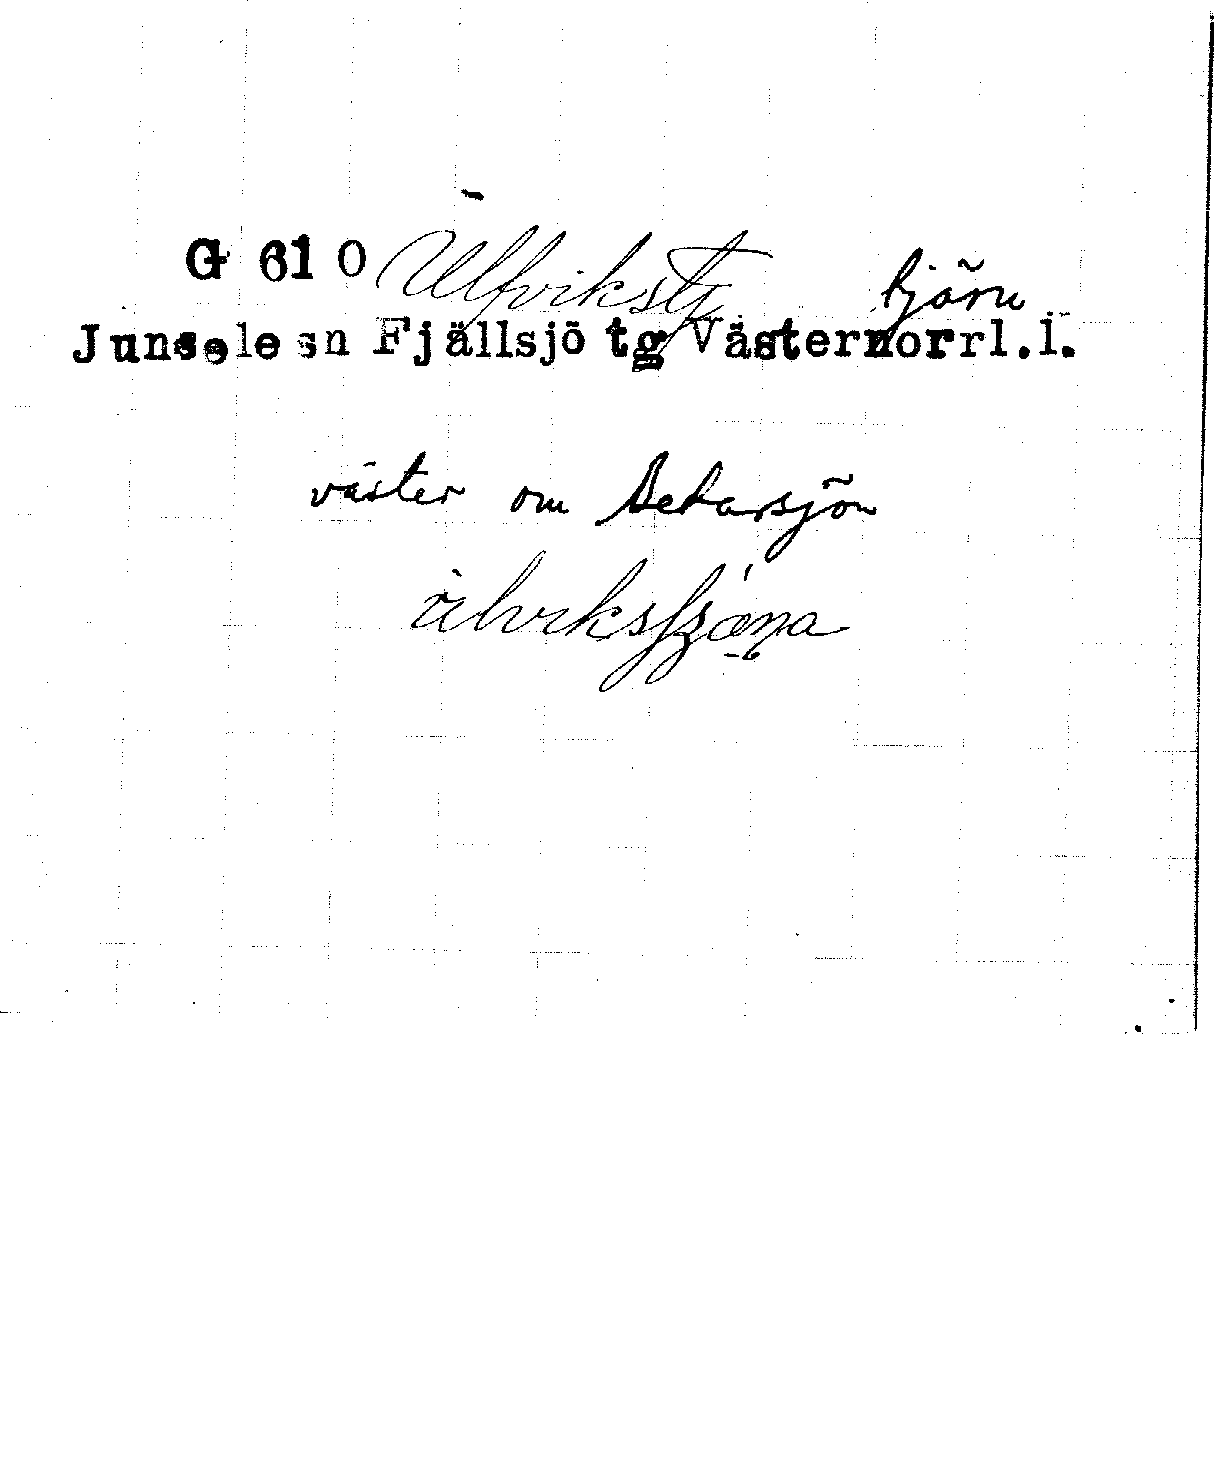 G 61 0 Ulfvikstj tjärn
Junsele sn Fjällsjö tg Västernorrl.l.
väster om Betarsjön